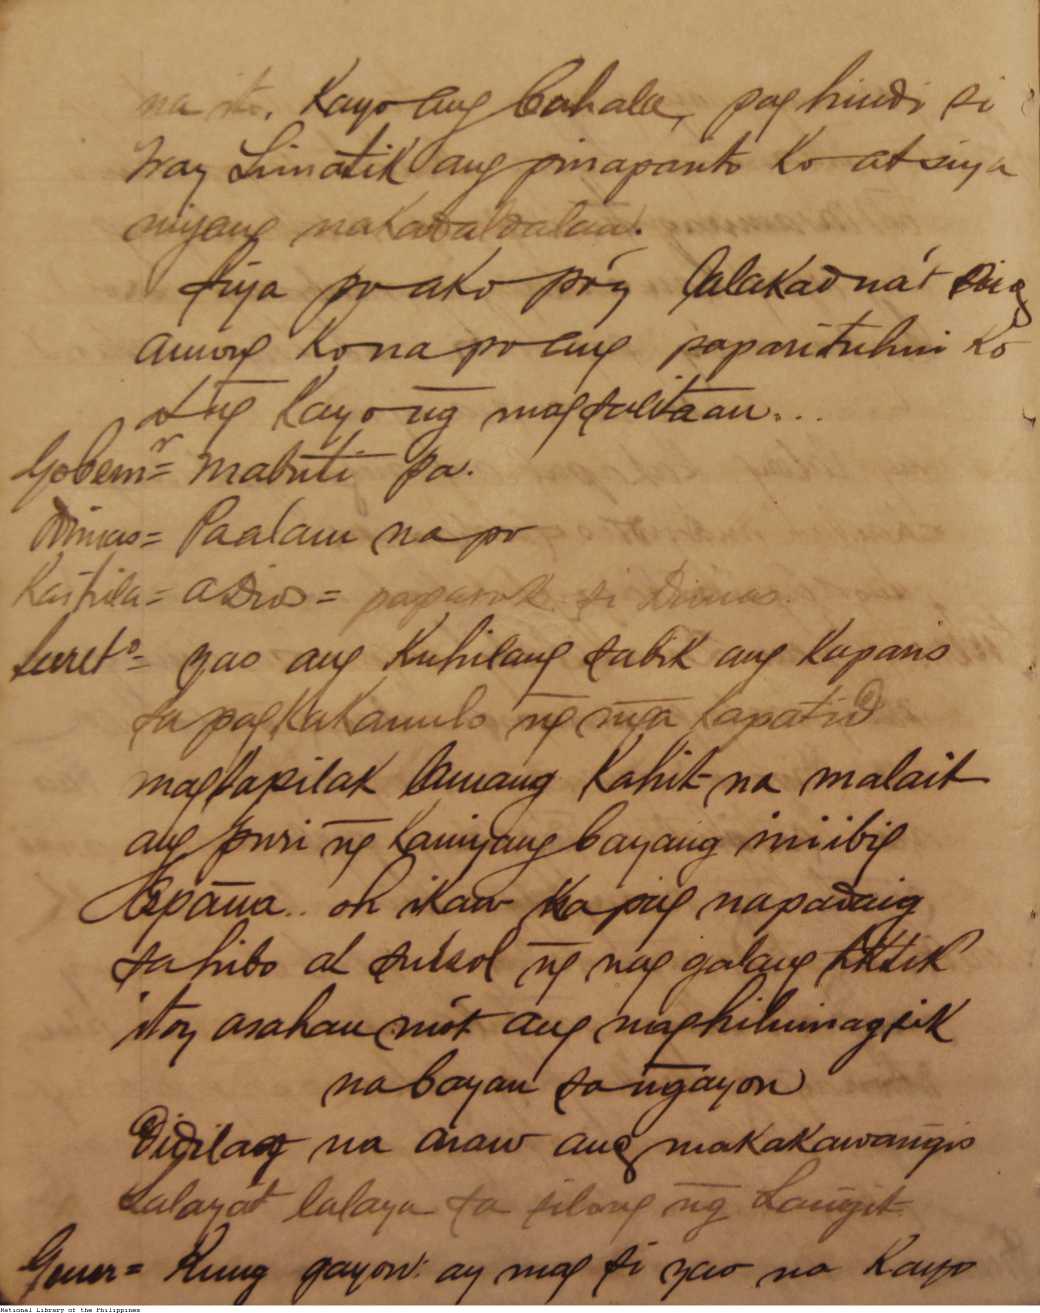 na ito. Kayo ang bahala, pag hindi si
way Limatik ang pinapanto ko at siya
niyang nakadaldalan.
Siya po ako po'y lalakad na't
among ko na po ang paparituhin ko
at ng Kayo ng magsalitaan...
Gobernr= Mabuti pa.
Dimas= Paalam na po
Kastila= adios= papasok si Dimas.
Secreto= yao ang Kuhilang sabik ang Kaparis
sa pagkakanulo ng mga Kapatid
magtapilak lamang Kahit na malait
ang puri ng Kaniyang bayang iniibig
España.. oh ikaw Ka pag napadaig
sa hibo at sulsol ng nag galang tiktik
ito'y asahan mo't ang maghihimagsik
na bayan sa ngayon
Didilag na araw ang makakawangis
Lalaya't lalaya sa silong ng Langit
Gener= Kung gayon: ay mag si yao na Kayo
National Library of the Philippines